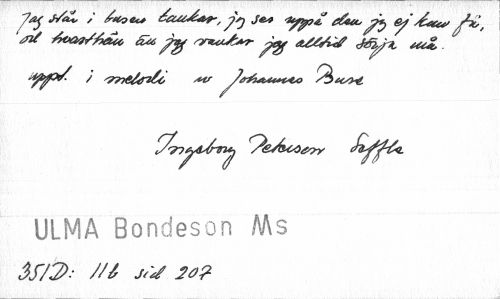 Jag står i tusen tankar, jag ser uppå den jag ej kan få,
och hvarthän än jag vankar jag alltid sörja må.
uppt. i melodi av Johannes Bure
Ingeborg Peterson Säffle
ULMA Bondeson Ms
351D: 11b sid 207